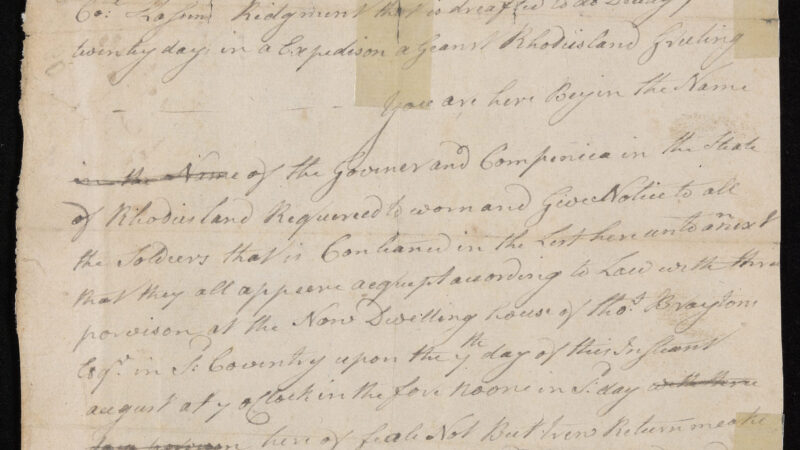 Ridgment that is drafted to do Duty
twenty days in a Expedison a Geanst Rhodiesland Greeting
You are here Beyin the Name
in the Name of the Goviner and Compinica in the State
of Rhodiesland Requered to worn and Give Notice to all
the Soldiers that is Contianed in the List here unto anext
that they all appeere aequept according to Law with thrie
porvison at the Now Dwelling house of thos. Braytons
Esqr. in Sd. Coventry upon the 7th day of this Instant
august at 7 oClock in the fore noone in Sd. day with three
here of feale Not But trew Return make